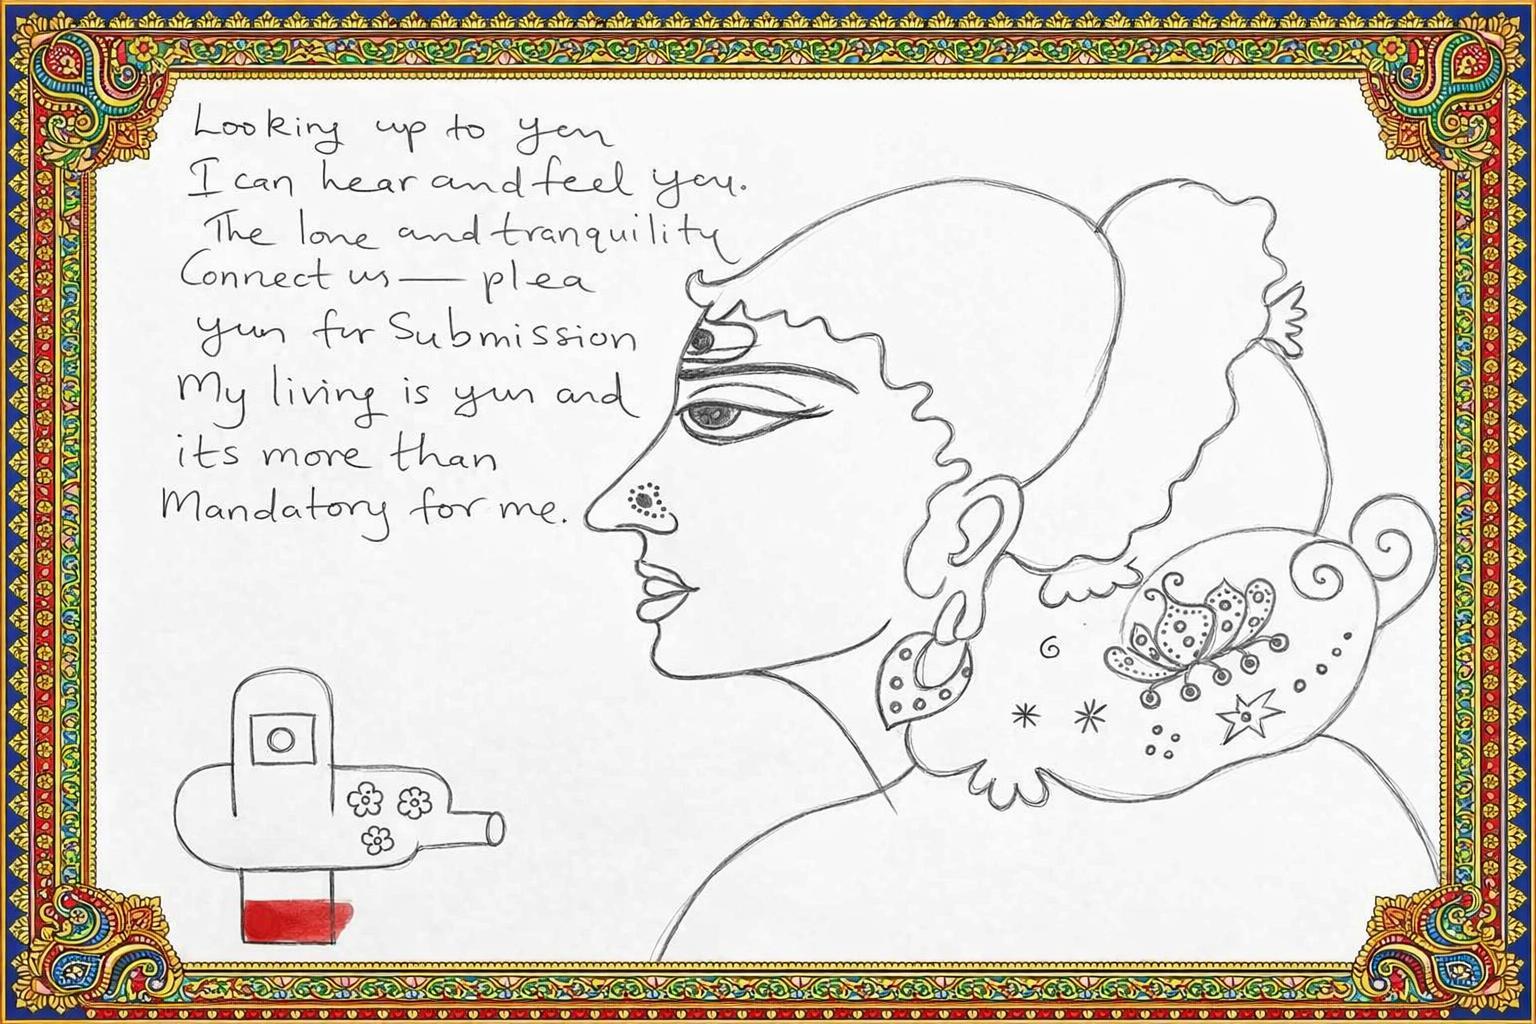 Looking up to you
I can hear and feel you.
The love and tranquility
Connect us — plea
your for Submission
My living is your and
its more than
Mandatory for me.